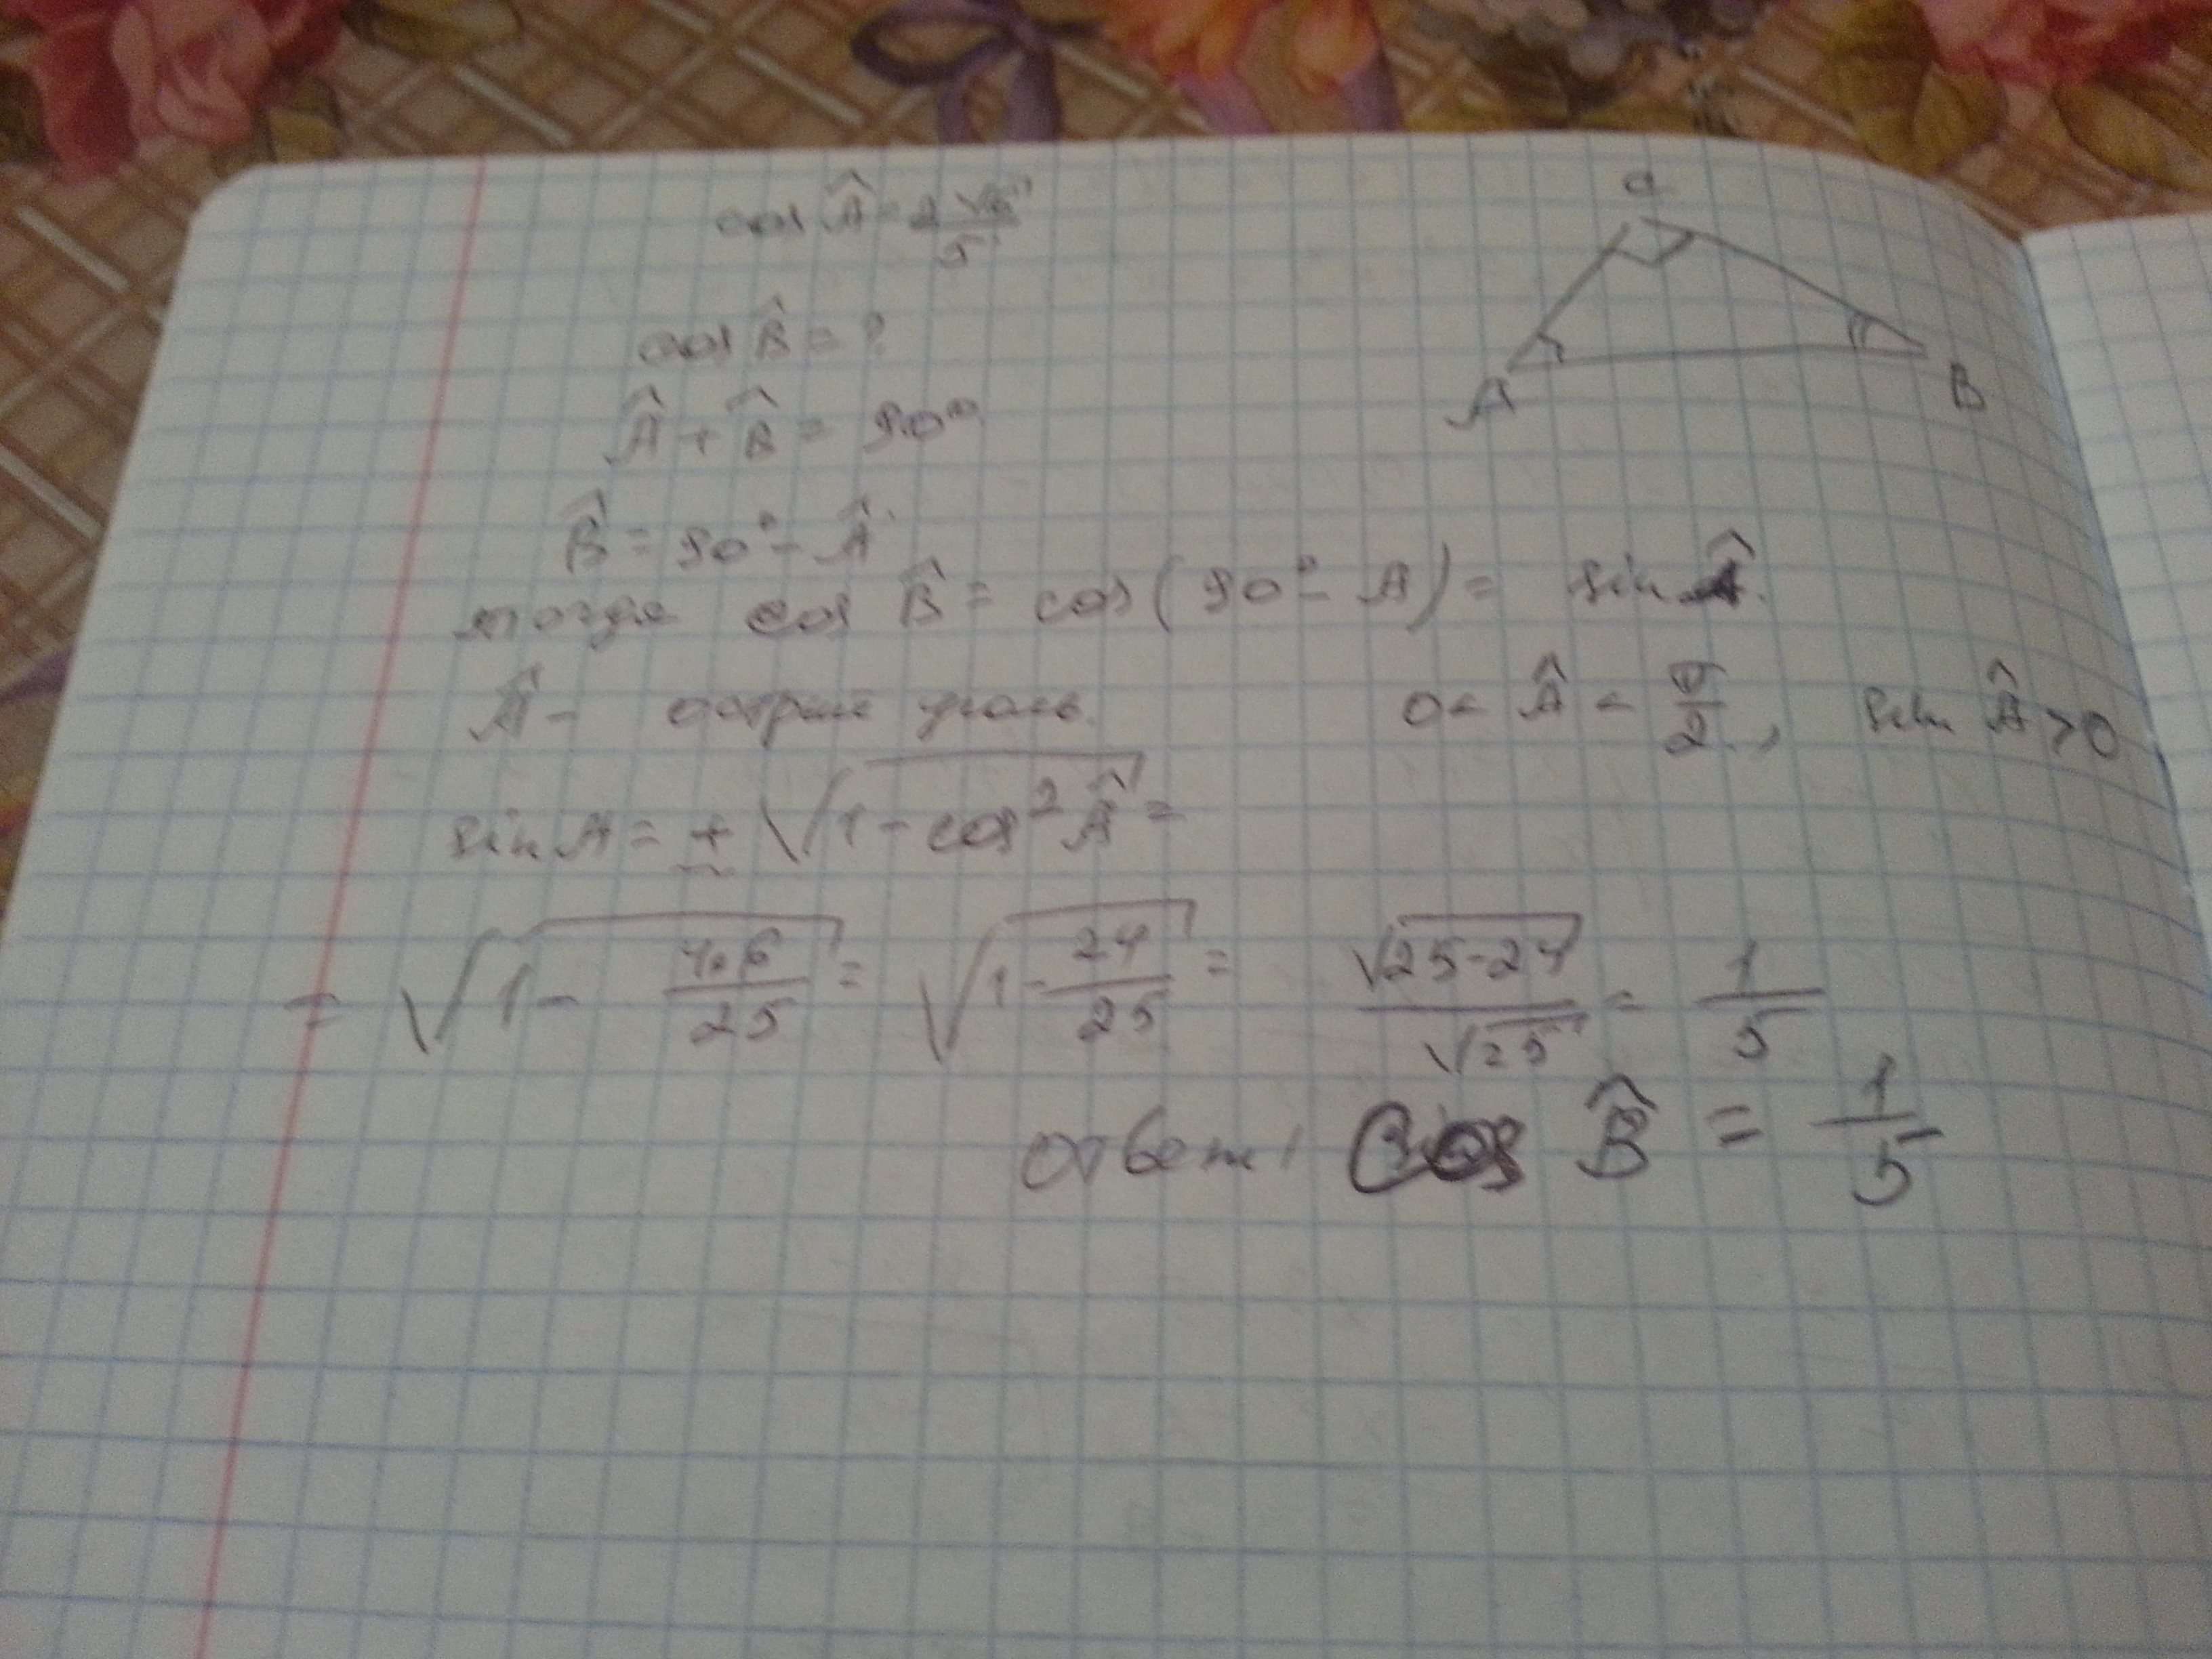 cos Â = 2√6/5
C
cos B̂ = ?
A B
Â + B̂ = 90°
B̂ = 90° - Â
тогда cos B̂ = cos(90° - A) = sin Â.
Â - острый угол. 0 < Â < π/2, sin Â > 0
sin A = + √(1 - cos² Â) =
= √(1 - 4·6/25) = √(1 - 24/25) = √(25-24)/√25 = 1/5
ответ: cos B̂ = 1/5